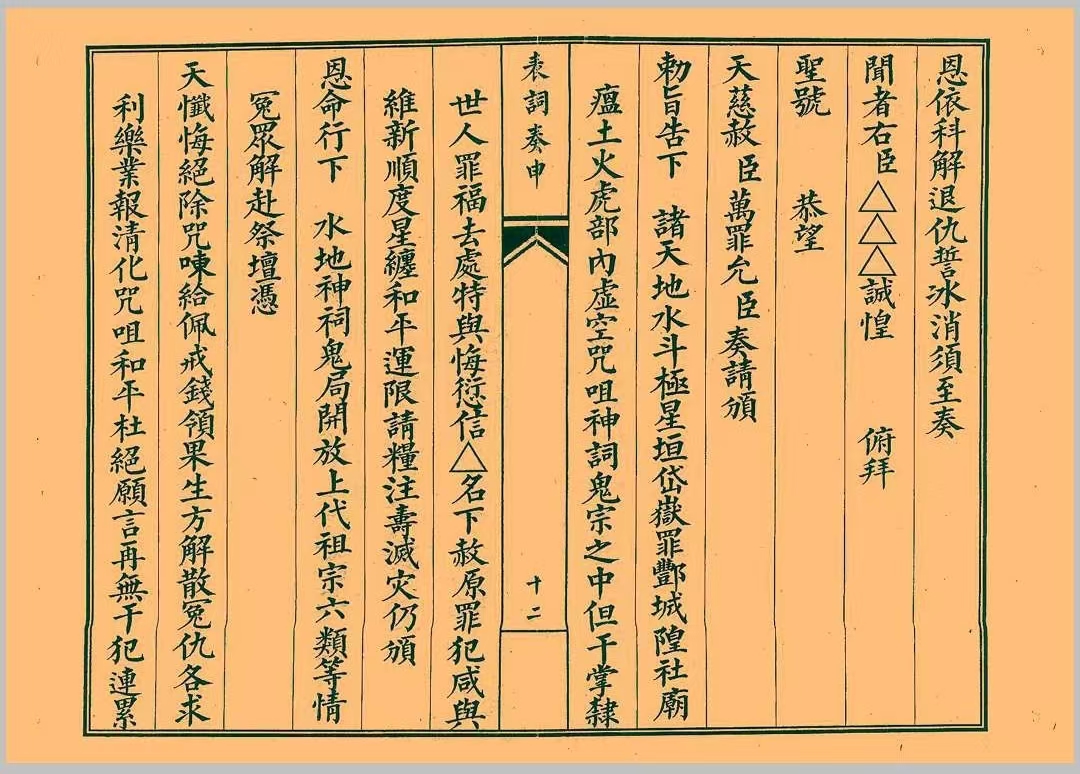 恩依科解退仇誓冰消須至奏
聞者右臣△△△誠惶 俯拜
聖號 恭望
天慈赦臣萬罪允臣奏請頒
勅旨告下 諸天地水斗極星垣岱嶽罪酆城隍社廟
瘟土火虎部內虛空咒咀神詞鬼宗之中但干掌隸
表詞奏申
十二
世人罪福去處特與悔愆信△名下赦原罪犯咸與
維新順度星纏和平運限請糧注壽滅灾仍頒
恩命行下 水地神祠鬼局開放上代祖宗六類等情
冤眾解赴祭壇憑
天懺悔絕除咒唻給佩戒錢領果生方解散冤仇各求
利樂業報清化咒咀和平杜絕願言再無干犯連累